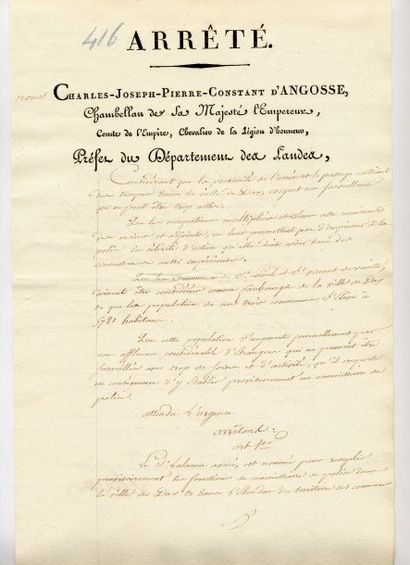 416
ARRÊTÉ.
CHARLES-JOSEPH-PIERRE-CONSTANT D'ANGOSSE,
Chambellan de Sa Majesté l'Empereur,
Comte de l'Empire, Chevalier de la Légion d'honneur,
Préfet du Département des Landes,
Considérant que la proximité de l'armée et le passage continuel
des troupes dans la ville de Dax, exigent une surveillance
qui ne peut être trop active.
Que les occupations multipliées et
des maires et adjoints, ne leur permettent pas d'imprimer à la
police la célérité d'action qu'elle doit avoir dans des
circonstances
Que les communes de St Paul et St Vincent de Xaintes,
peuvent être considérées comme faubourgs de la ville de Dax
et que la population de ces trois communes s'élève à
5781 habitans.
Que cette population s'augmente journellement par
une affluence considérable d'étrangers qui ne peuvent être
surveillés avec trop de soins et d'activité, qu'il importe
en conséquence d'y établir provisoirement un commissaire de
police.
attendu l'urgence
arrêtons:
art 1er
Le Sr est nommé pour remplir
provisoirement les fonctions de commissaire de police dans
la ville de Dax et dans l'étendue du territoire des communes